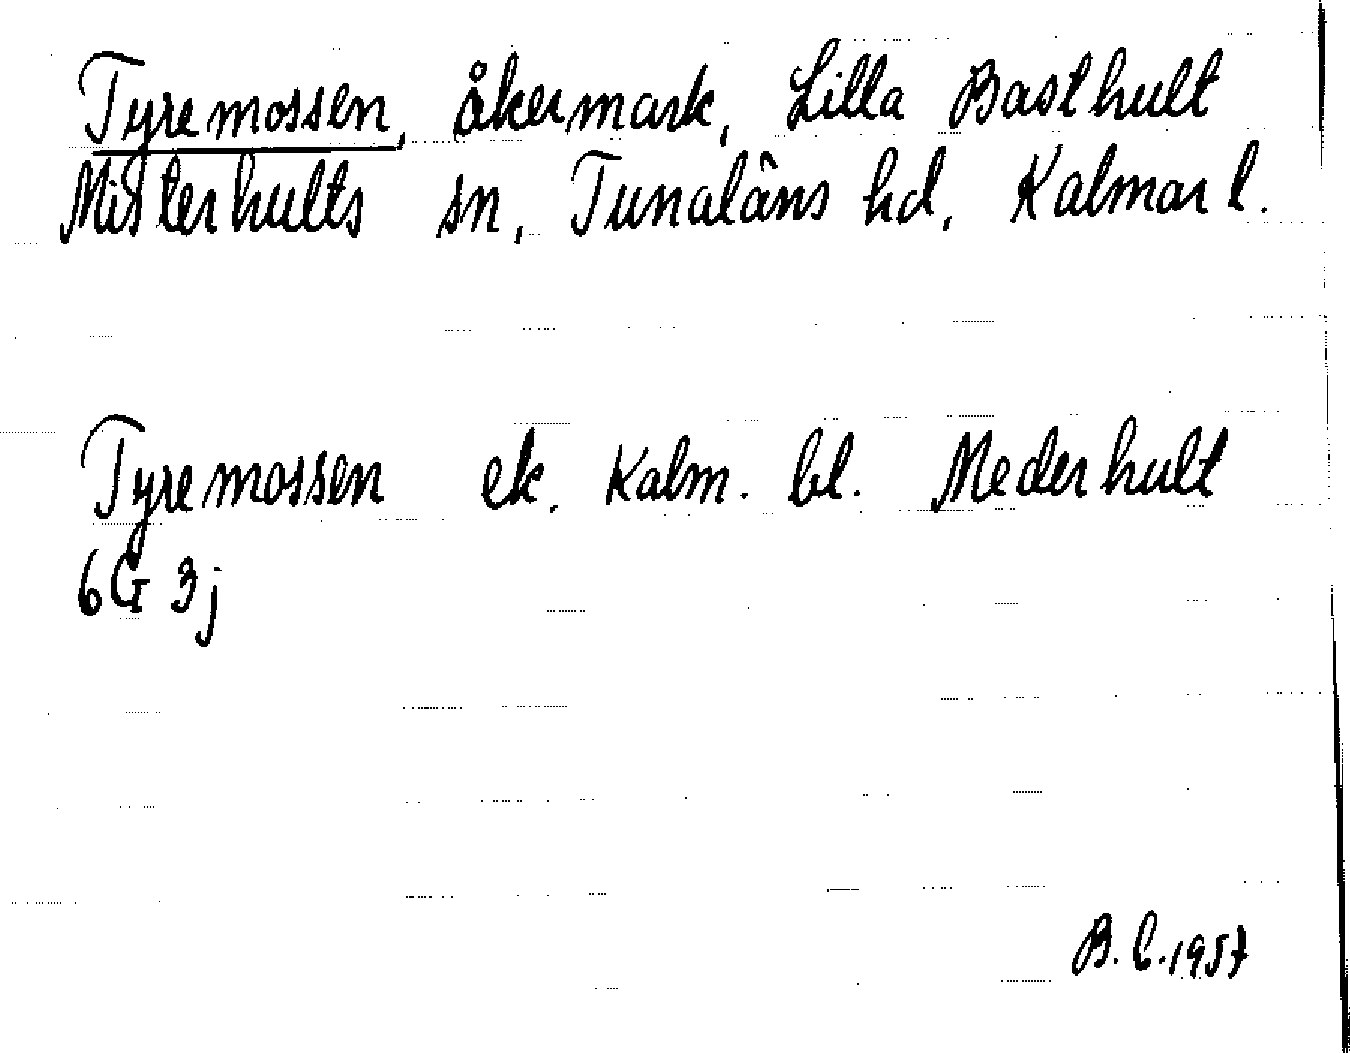 Tyremossen, åkermark, Lilla Basthult
Misterhults sn, Tunaläns hd, Kalmar l.
Tyremossen ek. Kalm. bl. Mederhult
6G 3j
B. C. 1957